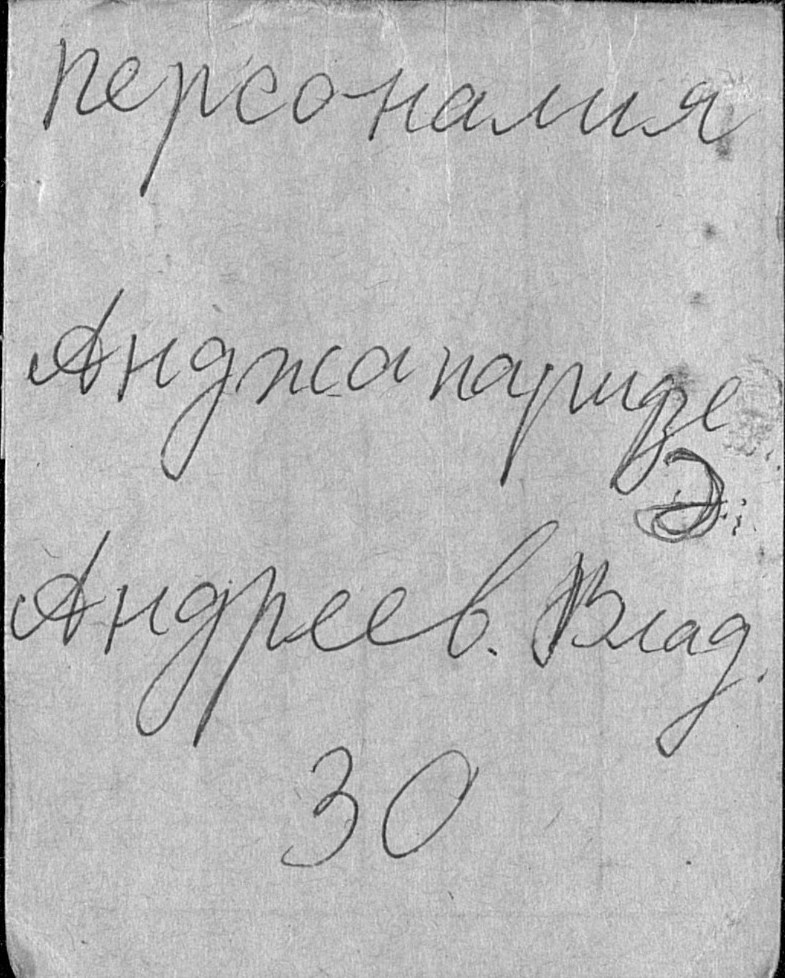 персоналия
Анджапаридзе
Э.
Андреев. Влад.
30